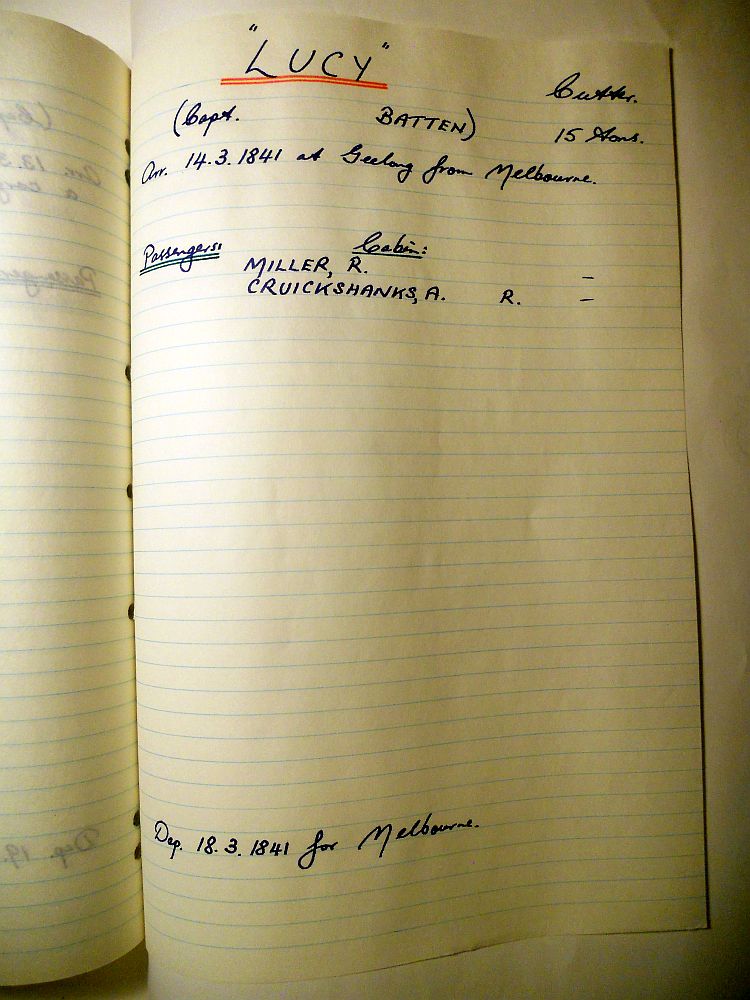 "LUCY"
Cutter.
(Capt. BATTEN) 15 tons.
Arr. 14.3.1841 at Geelong from Melbourne.
Passengers: Cabin:
MILLER, R. –
CRUICKSHANKS, A. R. –
Dep. 18.3.1841 for Melbourne.